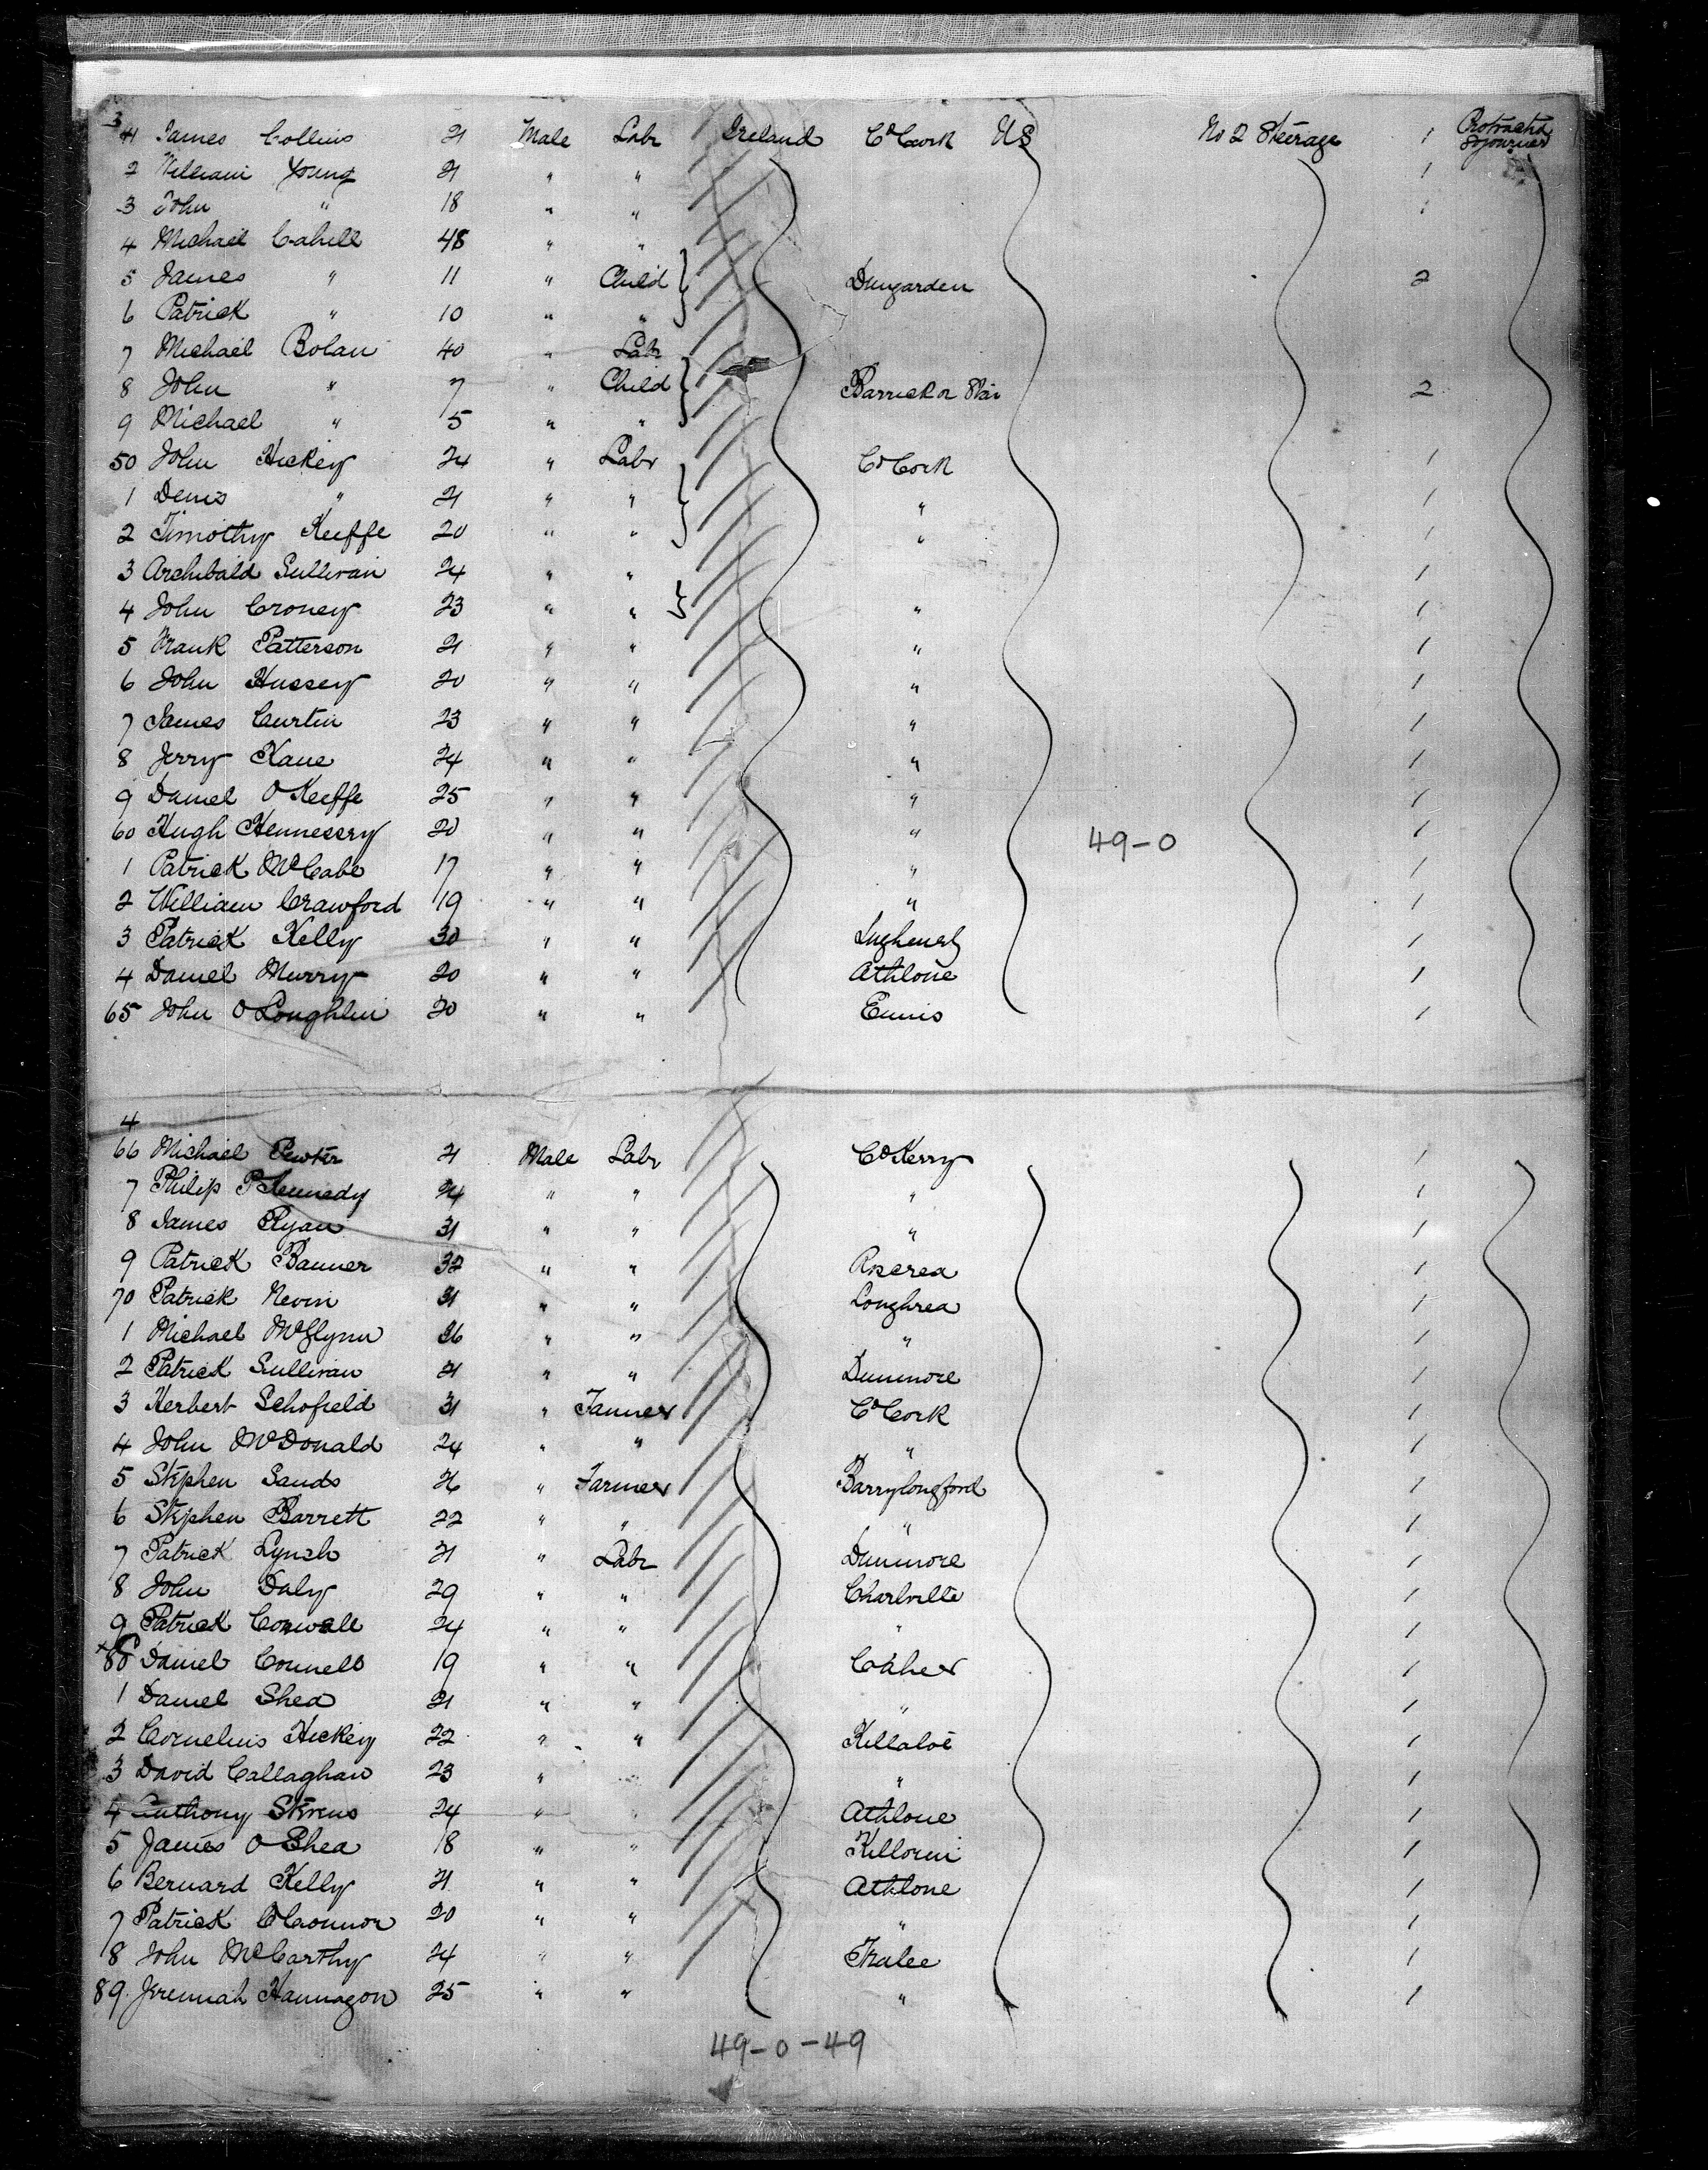 3
41 James Collins 21 Male Labr Ireland Co Cork US No 2 Steerage 1 Protracted Sojourner
2 William Young 21 " " 1
3 John " 18 " " 1
4 Michael Cahill 48 " "
5 James " 11 " Child Dungarden 2
6 Patrick " 10 " "
7 Michael Bolan 40 " Labr
8 John " 7 " Child Barrick on 2
9 Michael " 5 " "
50 John Hickey 24 " Labr Co Cork 1
1 Denis " 21 " " " 1
2 Timothy Keeffe 20 " " " 1
3 Archibald Sullivan 24 " " 1
4 John Croney 23 " " " 1
5 Frank Patterson 21 " " " 1
6 John Hussey 20 " " " 1
7 James Curtin 23 " " " 1
8 Jerry Kane 24 " " " 1
9 Daniel O Keeffe 25 " " " 1
60 Hugh Hennessry 20 " " " 1
49-0
1 Patrick McCabe 17 " " " 1
2 William Crawford 19 " " " 1
3 Patrick Kelly 30 " " 1
4 Daniel Murry 20 " " Athlone 1
65 John O Loughlin 20 " " Ennis 1
4
66 Michael Pewter 21 Male Labr Co Kerry 1
7 Philip P Kennedy 24 " " " 1
8 James Ryan 31 " " " 1
9 Patrick Banner 32 " " Roscrea 1
70 Patrick Nevin 31 " " Loughrea 1
1 Michael McGlynn 26 " " " 1
2 Patrick Sullivan 21 " " Dunmore 1
3 Herbert Schofield 31 " Tanner Co Cork 1
4 John McDonald 24 " " " 1
5 Stephen Sands 26 " Farmer Barrylongford 1
6 Stephen Barrett 22 " " " 1
7 Patrick Lynch 21 " Labr Dunmore 1
8 John Daly 29 " " Charlville 1
9 Patrick Conwell 24 " " " 1
80 Daniel Connell 19 " " Caher 1
1 Daniel Shea 21 " " " 1
2 Cornelius Hickey 22 " " Killaloe 1
3 David Callaghan 23 " " " 1
4 Anthony Stevens 24 " " Athlone 1
5 James O Shea 18 " " Killorin 1
6 Bernard Kelly 21 " " Athlone 1
7 Patrick O'Connor 20 " " " 1
8 John McCarthy 24 " " Tralee 1
89. Jeremiah Hannagon 25 " " " 1
49-0-49